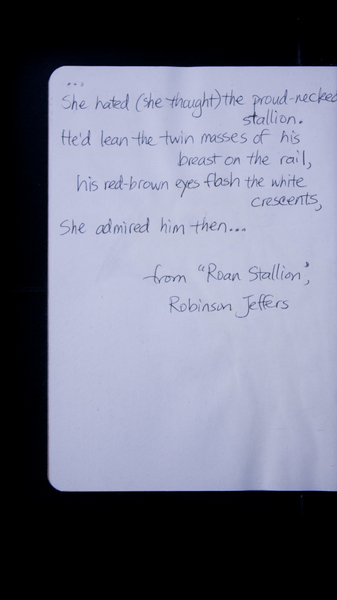 ...
She hated (she thought) the proud-necked
stallion.
He'd lean the twin masses of his
breast on the rail,
his red-brown eyes flash the white
crescents,
She admired him then...
from "Roan Stallion",
Robinson Jeffers